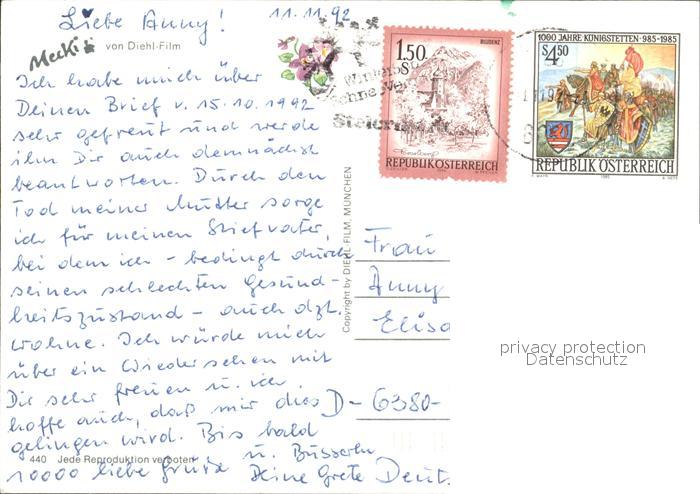 Liebe Anny!
11.11.92
Mecki
von Diehl-Film
Ich habe mich über
Deinen Brief v. 15.10.1992
sehr gefreut und werde
ihn Dir auch demnächst
beantworten. Durch den
Tod meiner Mutter sorge
ich für meinen Stiefvater,
bei dem ich - bedingt durch
seinen schlechten Gesund-
heitszustand - auch dzt.
wohne. Ich würde mich
über ein Wiedersehen mit
Dir sehr freuen u. ich
hoffe auch, daß mir dies
gelingen wird. Bis bald
10000 liebe Grüße u. Busserln
Deine Grete
440 Jede Reproduktion verboten
Copyright by DIEHL-FILM, MÜNCHEN
1.50
BLUDENZ
REPUBLIK ÖSTERREICH
1000 JAHRE KÖNIGSTETTEN · 985-1985
S 4.50
REPUBLIK ÖSTERREICH
Frau
Anny
Elisa
D - 6380-
Deut
privacy protection
Datenschutz